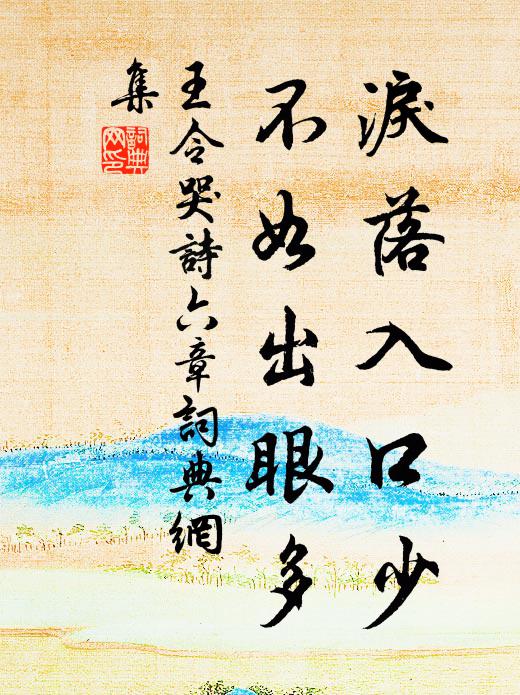 淚落入口少
不如出眼多
王令哭詩六章詞典網
集
詞典
网印